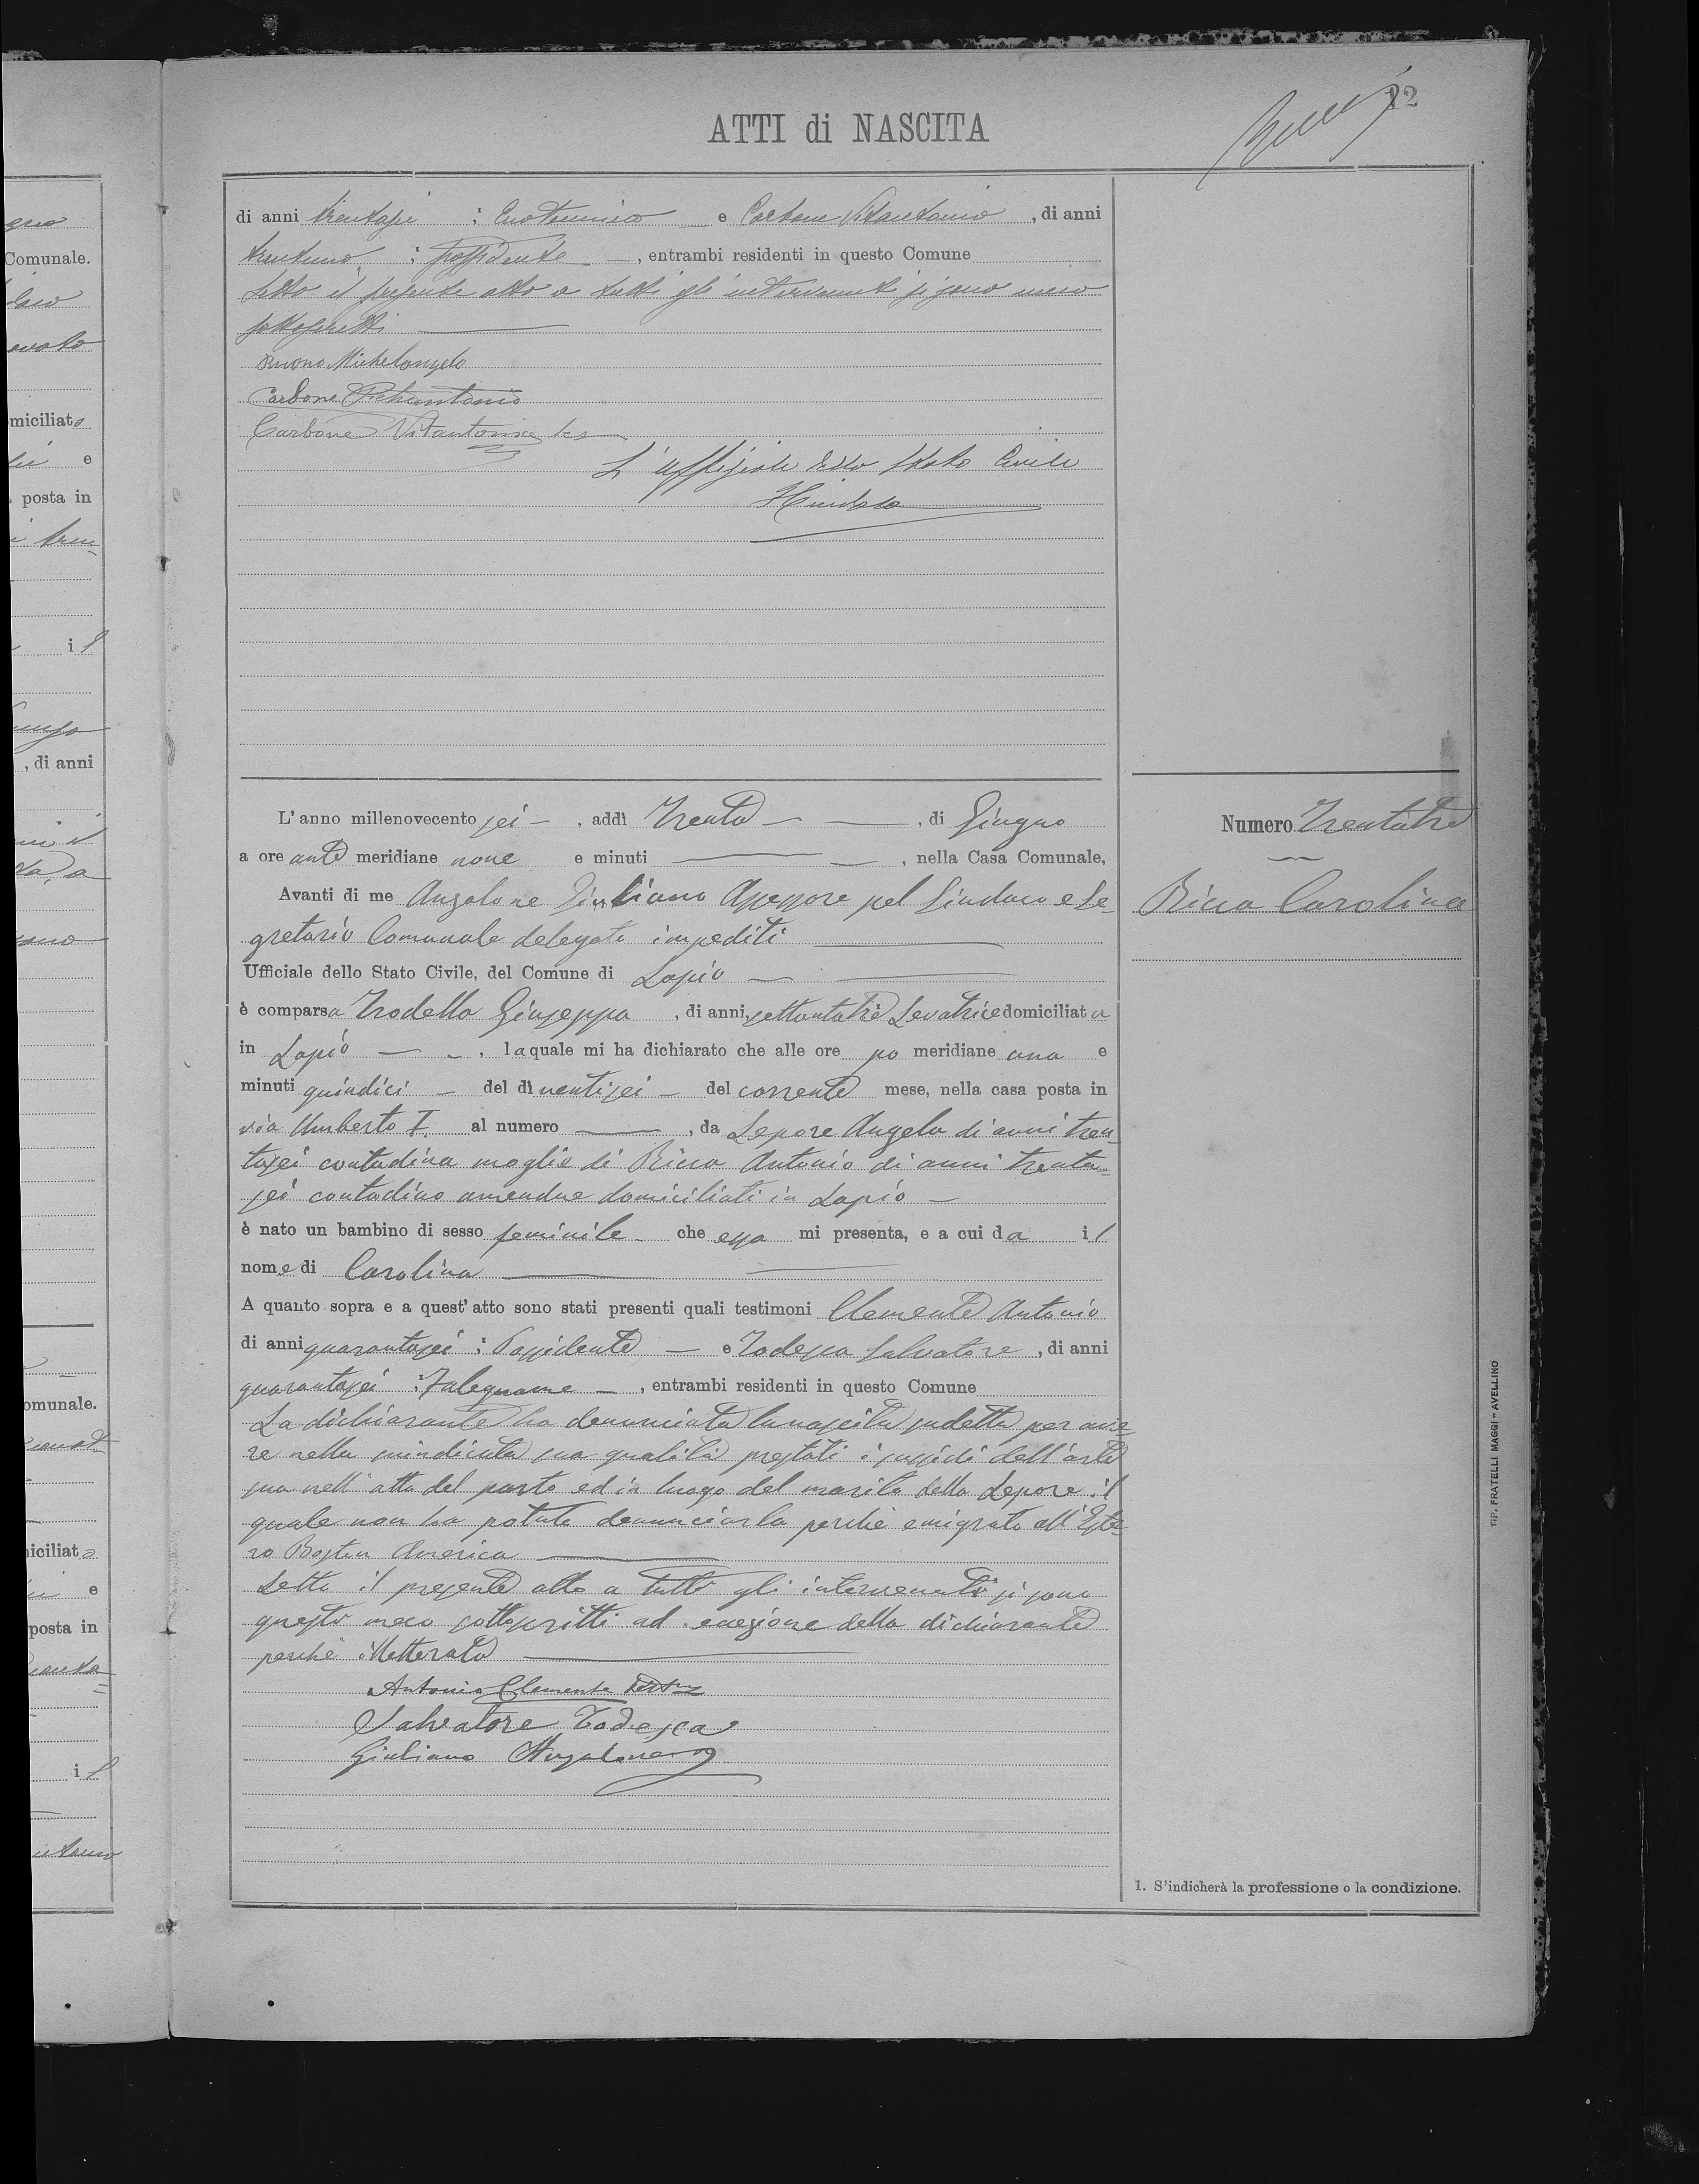 12
ATTI di NASCITA
di anni trentasei : Enotecnico e Carbone Vitantonio, di anni
trentuno : possidente, entrambi residenti in questo Comune
Letto il presente atto a tutti gli intervenuti si sono meco
sottoscritti
Buono Michelangelo
Carbone
Carbone Vitantonio tes
L'Uffiziale dello Stato Civile
L'anno millenovecento sei, addì Trenta, di Giugno
a ore ante meridiane nove e minuti, nella Casa Comunale,
Avanti di me Angelone Giuliano Assessore pel Sindaco e Se-
gretario Comunale delegato impediti
Ufficiale dello Stato Civile, del Comune di Lapio
è comparsa Trodella Giuseppa, di anni settantatre Levatrice domiciliata
in Lapio, la quale mi ha dichiarato che alle ore po meridiane una e
minuti quindici del dì ventisei del corrente mese, nella casa posta in
via Umberto I. al numero, da Lepore Angela di anni tren-
tasei contadina moglie di Ricca Antonio di anni trenta-
sei contadino amendue domiciliati in Lapio
è nato un bambino di sesso feminile che essa mi presenta, e a cui da il
nome di Carolina
A quanto sopra e a quest'atto sono stati presenti quali testimoni Clemente Antonio
di anni quarantasei : Possidente e Todesca Salvatore, di anni
quarantasei : Falegname, entrambi residenti in questo Comune
La dichiarante ha denunciata la nascita sudetta per ave-
re nella suindicata sua qualità prestati i sussidi dell'arte
sua nell'atto del parto ed in luogo del marito della Lepore il
quale non ha potuto denunciarla perchè emigrato all'Este-
ro Boston America
Letto il presente atto a tutti gli intervenuti si sono
questi meco sottoscritti ad eccezione della dichiarante
perchè illetterata
Antonio Clemente
Salvatore Todesca
Giuliano Angelone
Numero Trentatre
Ricca Carolina
1. S'indicherà la professione o la condizione.
TIP. FRATELLI MAGGI - AVELLINO
Comunale.
miciliato
e
posta in
il
, di anni
omunale.
iciliato
e
posta in
il